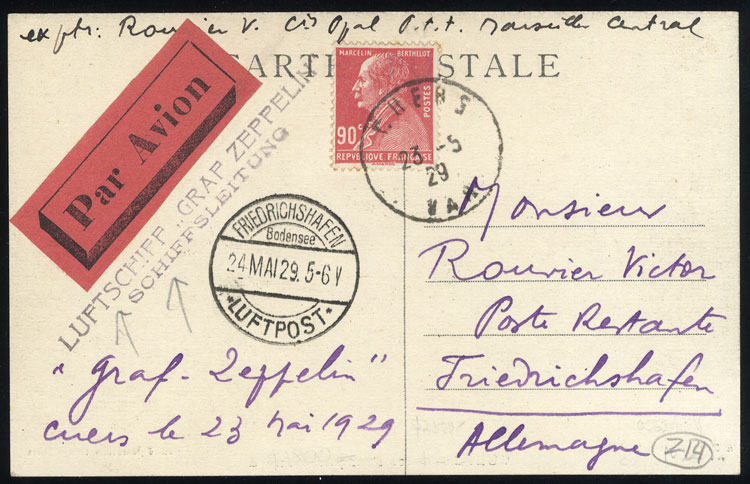 exptr: Rouvier V. Cis Ppal P.t.t. Marseille Central
CARTE POSTALE
Par Avion
LUFTSCHIFF „GRAF ZEPPELIN
SCHIFFSLEITUNG
MARCELIN BERTHELOT
90c
POSTES
REPUBLIQUE FRANÇAISE
CUERS
23 -5
29
VAR
FRIEDRICHSHAFEN
Bodensee
24 MAI 29. 5-6 V
* LUFTPOST *
Monsieur
Rouvier Victor
Poste Restante
Friedrichshafen
Allemagne
Z14
"Graf-Zeppelin"
cuers le 23 Mai 1929